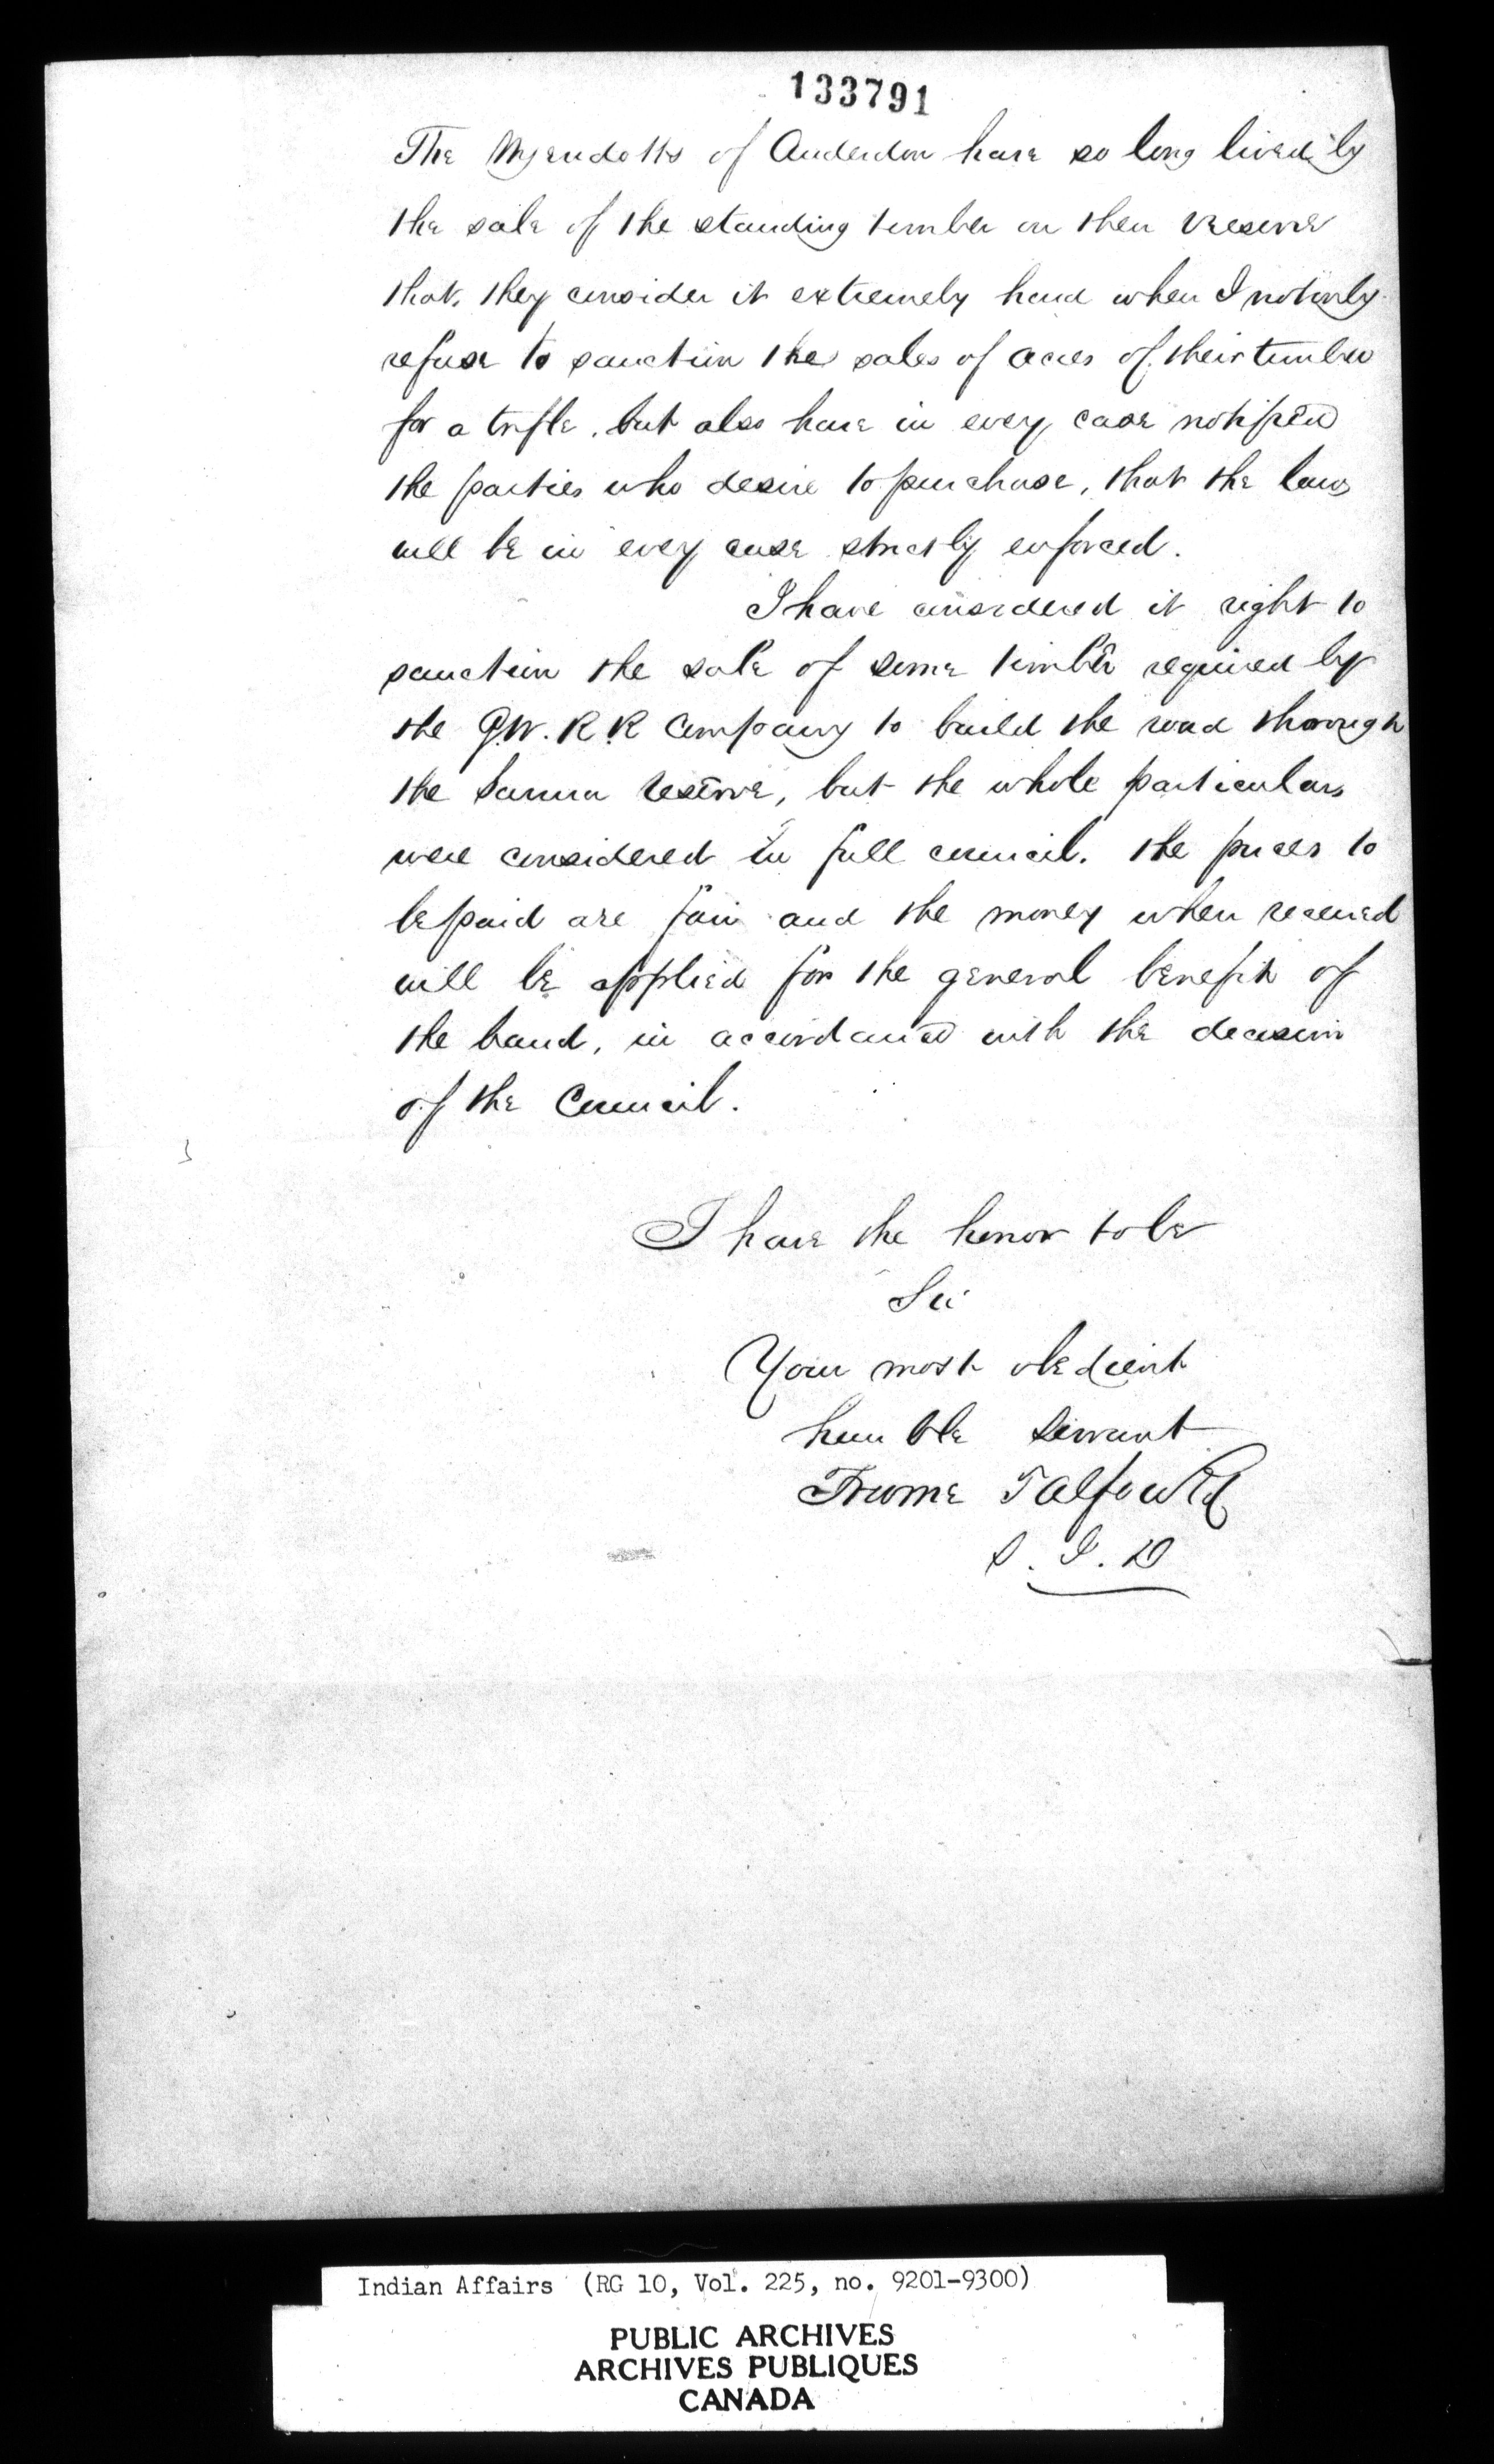 133791
The Wyendotts of Anderdon have so long lived by
the sale of the standing timber on their Reserve
that, they consider it extremely hard when I not only
refuse to sanction the sales of acres of their timber
for a trifle, but also have in every case notified
the parties who desire to purchase, that the laws
will be in every case strictly enforced.
I have considered it right to
sanction the sale of some timber required by
the G.W. R R Company to build the road through
the Sarnia reserve, but the whole particulars
were considered in full council. the prices to
be paid are fair and the money when received
will be applied for the general benefit of
the band, in accordance with the decision
of the Council.
I have the honor to be
Sir
Your most obedient
humble servant
Froome Talfourd
S. I. D
Indian Affairs (RG 10, Vol. 225, no. 9201-9300)
PUBLIC ARCHIVES
ARCHIVES PUBLIQUES
CANADA